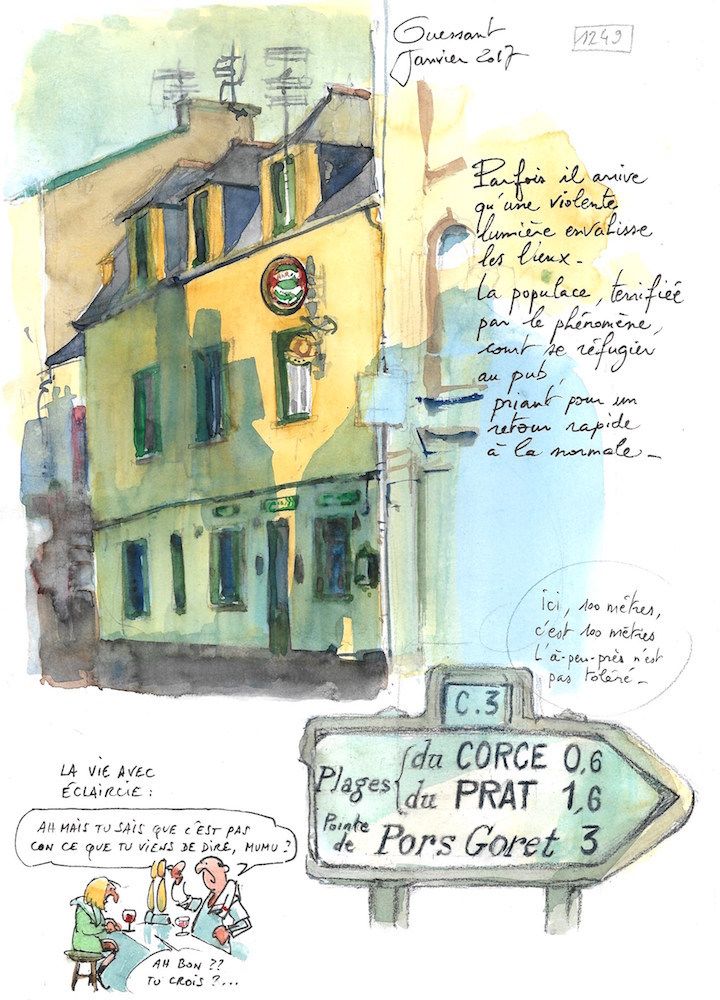 Ouessant
Janvier 2017
1249
Parfois il arrive
qu'une violente
lumière envahisse
les lieux_
La populace, terrifiée
par le phénomène,
court se réfugier
au pub,
priant pour un
retour rapide
à la normale_
ici, 100 mètres,
c'est 100 mètres
L'à-peu-près n'est
pas toléré_
C.3
Plages { du CORCE 0,6
du PRAT 1,6
Pointe de Pors Goret 3
LA VIE AVEC
ÉCLAIRCIE :
AH MAIS TU SAIS QUE C'EST PAS
CON CE QUE TU VIENS DE DIRE, MUMU ?
AH BON ??
TU CROIS ?...